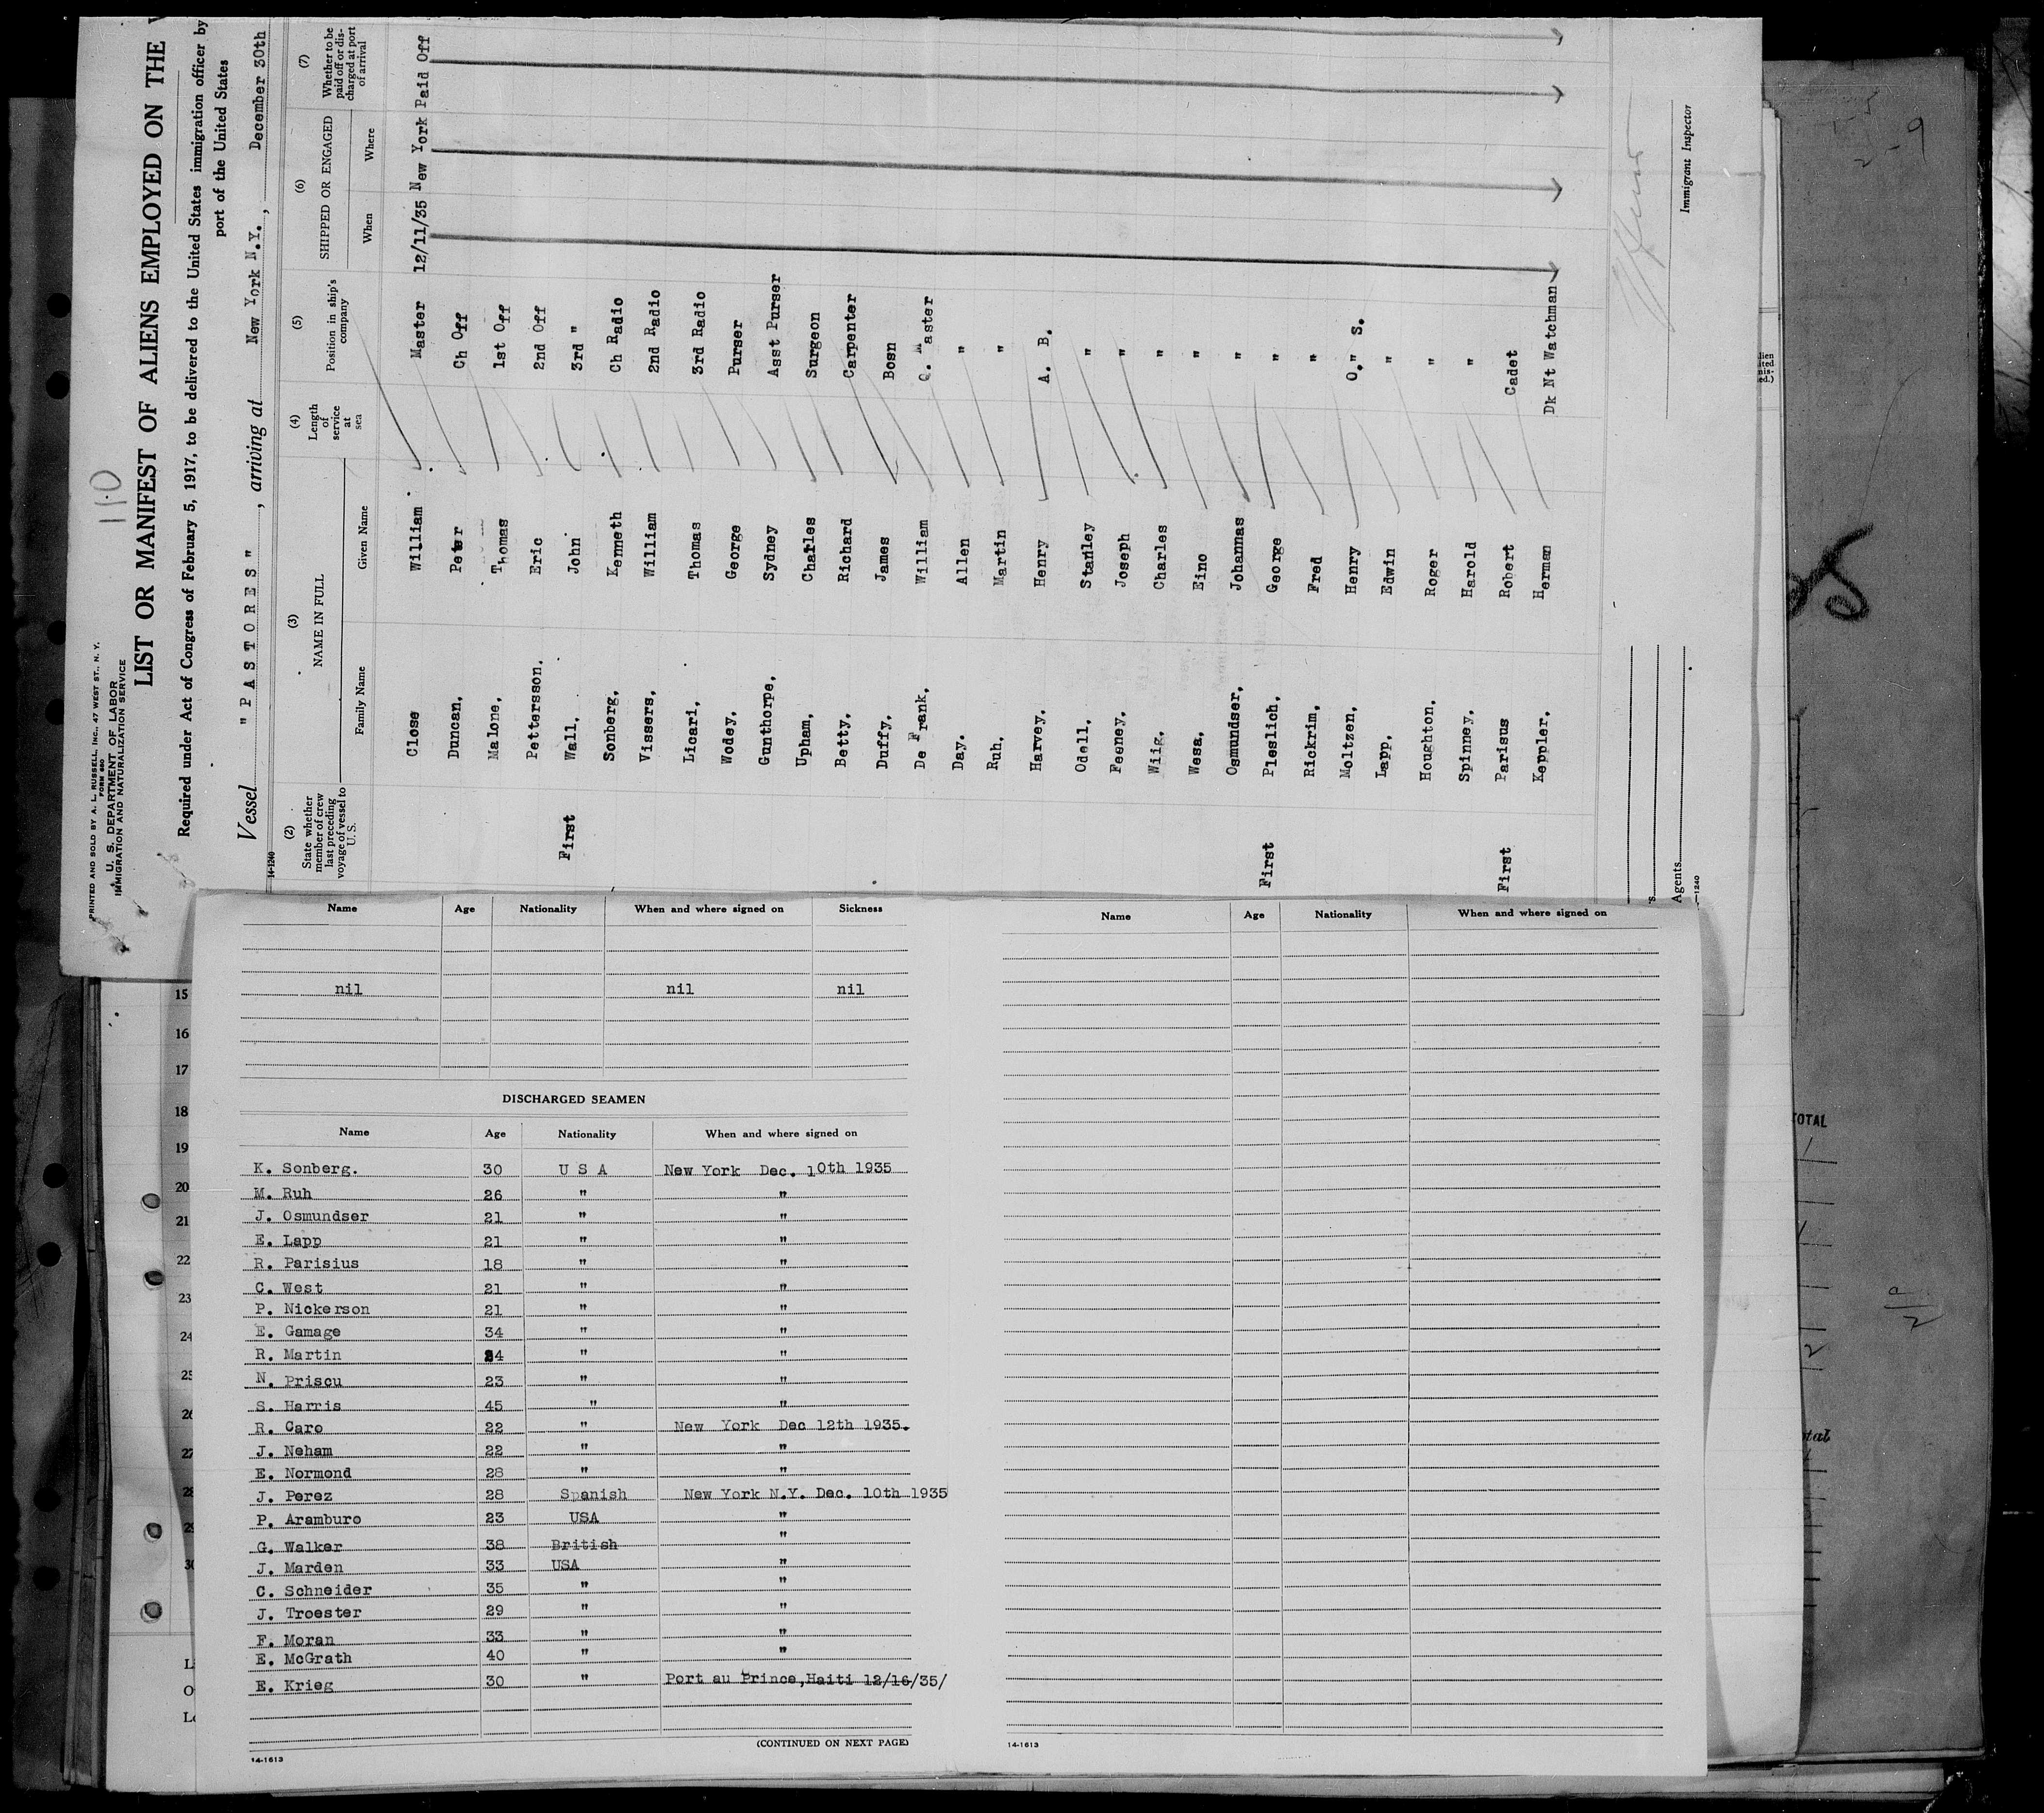 110
PRINTED AND SOLD BY A. L. RUSSELL, INC., 47 WEST ST., N. Y.
FORM 680
U. S. DEPARTMENT OF LABOR
IMMIGRATION AND NATURALIZATION SERVICE
LIST OR MANIFEST OF ALIENS EMPLOYED ON THE
Required under Act of Congress of February 5, 1917, to be delivered to the United States immigration officer by
port of the United States
Vessel "PASTORES", arriving at New York N.Y., December 30th
14-1240
(2) (3) (4) (5) (6) (7)
State whether member of crew last preceding voyage of vessel to U. S. NAME IN FULL Length of service at sea Position in ship's company SHIPPED OR ENGAGED Whether to be paid off or discharged at port of arrival
Family Name Given Name When Where
Close William Master 12/11/35 New York Paid Off
Duncan, Peter Ch Off
Malone, Thomas 1st Off
Pettersson. Eric 2nd Off
First Wall, John 3rd "
Sonberg, Kenneth Ch Radio
Vissers, William 2nd Radio
Licari, Thomas 3rd Radio
Wodey, George Purser
Gunthorpe, Sydney Asst Purser
Upham, Charles Surgeon
Betty, Richard Carpenter
Duffy, James Bosn
De Frank, William Q. Master
Day. Allen "
Ruh, Martin "
Harvey. Henry A. B.
Odell. Stanley "
Feeney. Joseph "
Wiig, Charles "
Wesa, Eino "
Osmundser, Johannas "
First Pleslich, George "
Rickrim, Fred "
Moltzen, Henry O." S.
Lapp, Edwin "
Houghton, Roger "
Spinney, Harold "
First Parisus Robert Cadet
Keppler, Herman Dk Nt Watchman
Immigrant Inspector
Agents
—1240
Name Age Nationality When and where signed on Sickness
nil nil nil
DISCHARGED SEAMEN
Name Age Nationality When and where signed on
K. Sonberg. 30 U S A New York Dec. 10th 1935
M. Ruh 26 " "
J. Osmundser 21 " "
E. Lapp 21 " "
R. Parisius 18 " "
C. West 21 " "
P. Nickerson 21 " "
E. Gamage 34 " "
R. Martin 24 " "
N. Priscu 23 " "
S. Harris 45 " "
R. Caro 22 " New York Dec 12th 1935.
J. Neham 22 " "
E. Normond 28 " "
J. Perez 28 Spanish New York N.Y. Dec. 10th 1935
P. Aramburo 23 USA "
G. Walker 38 British "
J. Marden 33 USA "
C. Schneider 35 " "
J. Troester 29 " "
F. Moran 33 " "
E. McGrath 40 " "
E. Krieg 30 " Port au Prince, Haiti 12/16/35/
(CONTINUED ON NEXT PAGE)
14-1613
Name Age Nationality When and where signed on
14-1613
15
16
17
18
19
20
21
22
23
24
25
26
27
28
29
30
TOTAL